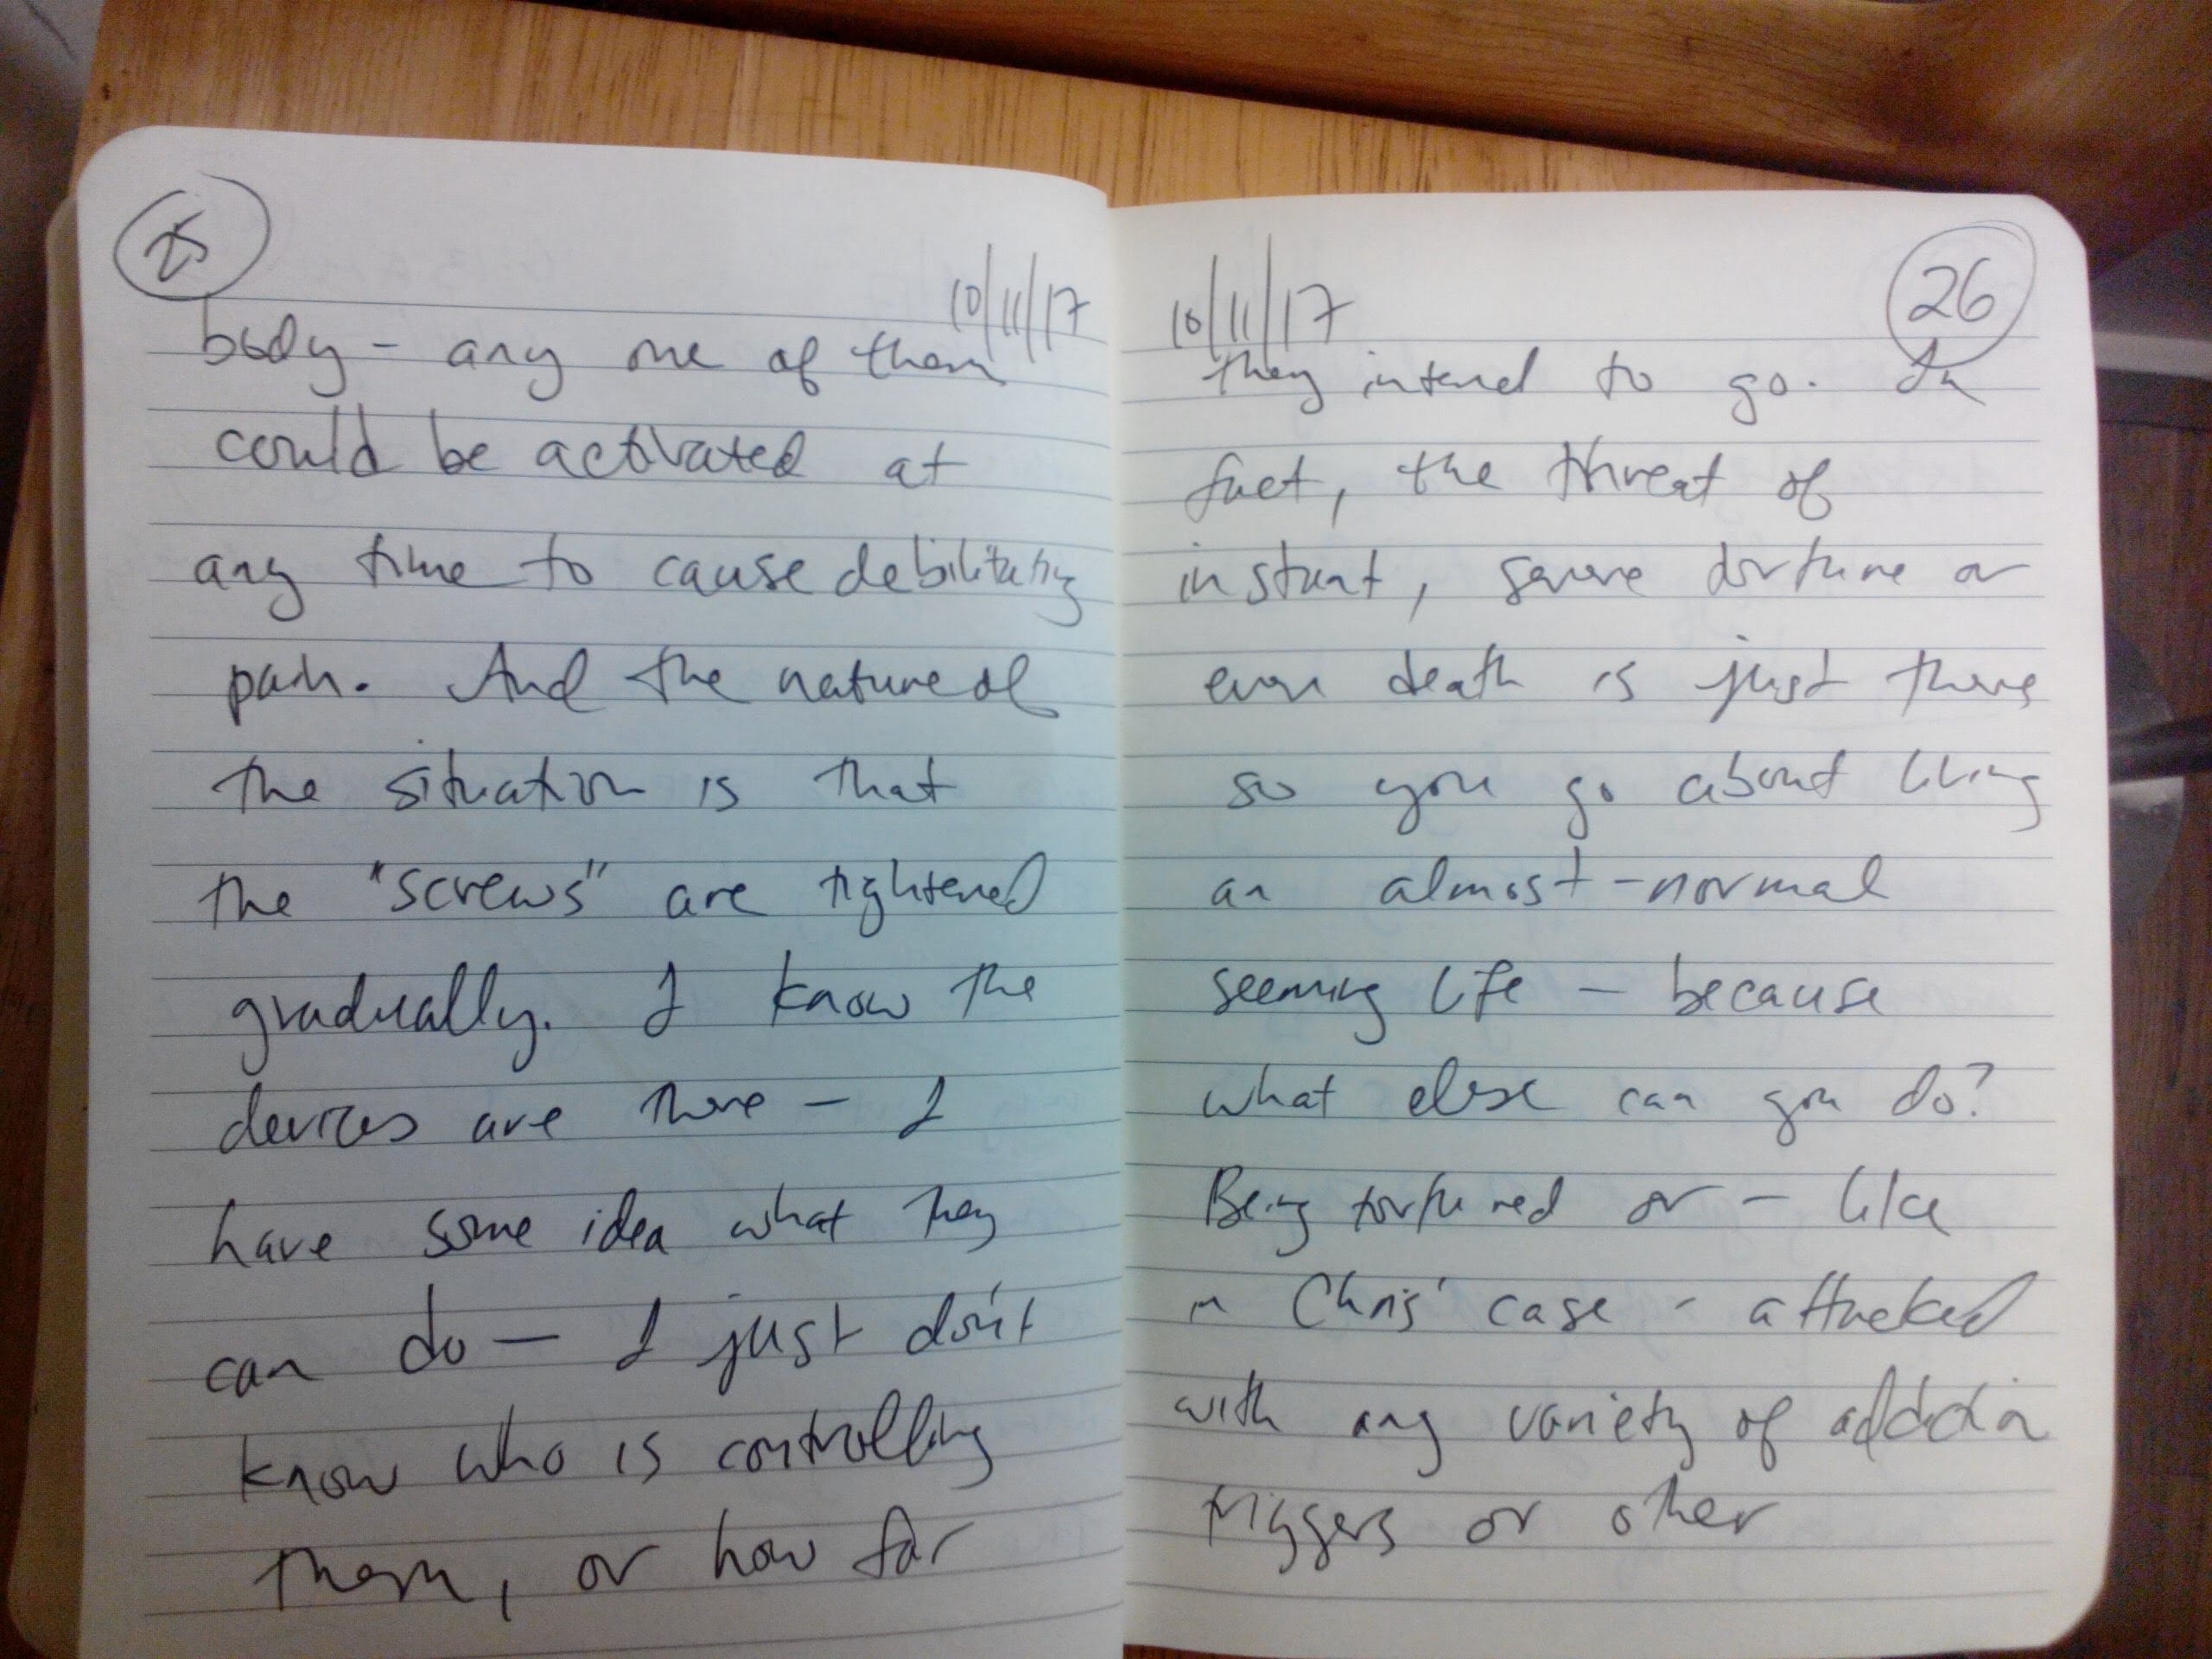 25
10/11/17
body - any one of them
could be activated at
any time to cause debilitating
pain. And the nature of
the situation is that
the "screws" are tightened
gradually. I know the
devices are there - I
have some idea what they
can do - I just don't
know who is controlling
them, or how far
10/11/17
26
they intend to go. In
fact, the threat of
instant, severe torture or
even death is just there
so you go about living
an almost-normal
seeming life - because
what else can you do?
Being tortured or - like
in Chris' case - attacked
with any variety of addiction
triggers or other